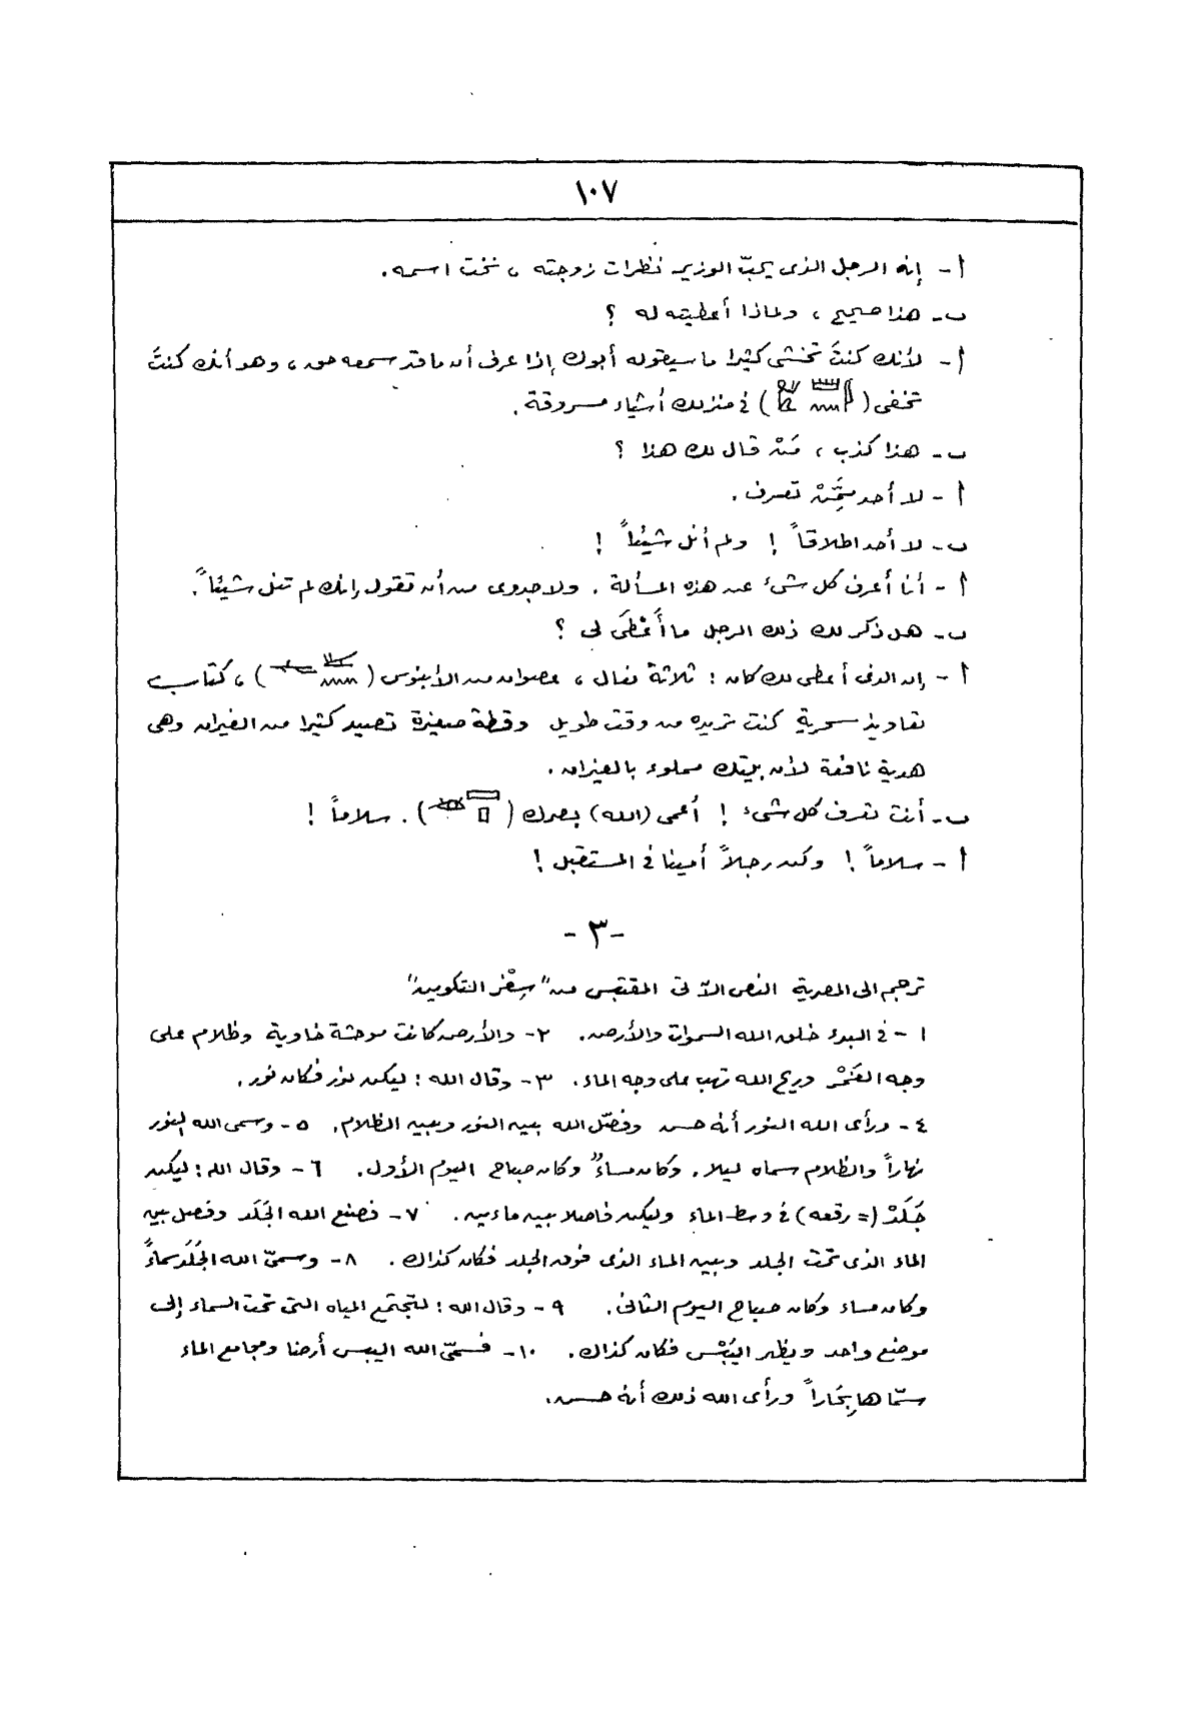 ١٠٧
أ - إنه الرجل الذى يحبّ الوزير نظرات زوجته ، نخت اسمه .
ب - هذا صحيح ، ولماذا أعطيته له ؟
أ - لأنك كنتَ تخشى كثيرا ما سيقوله أبوك إذا عرف أن ما قد سمعه حق ، وهو أنك كنتَ
تخفى ( ) فى منزلك أشياء مسروقة .
ب - هذا كذب ، مَنْ قال لك هذا ؟
أ - لا أحد مِمَّنْ تعرف .
ب - لا أحد اطلاقاً ! ولم أنل شيئاً !
أ - أنا أعرف كل شىء عن هذه المسألة . ولا جدوى من أن تقول إنك لم تنل شيئاً .
ب - هل ذكر لك ذلك الرجل ما أَعْطَى لى ؟
أ - إن الذى أعطى لك كان : ثلاثة نعال ، عصوان من الأبنوس ( ) ، كتاب
تعاويذ سحرية كنت تريده من وقت طويل وقطة صغيرة تصيد كثيرا من الفيران وهى
هدية نافعة لأن بيتك مملوء بالفيران .
ب - أنت تعرف كل شىء ! أعمى (الله) بصرك ( ) . سلاماً !
أ - سلاماً ! وكن رجلاً أمينا فى المستقبل !
- ٣ -
ترجم الى المصرية النص الآتى المقتبس من "سِفْر التكوين"
١ - فى البدء خلق الله السموات والأرض . ٢ - والأرض كانت موحشة خاوية وظلام على
وجه الغَمْر وريح الله تهب على وجه الماء . ٣ - وقال الله : ليكن نور فكان نور .
٤ - ورأى الله النور أنه حسن وفصّل الله بين النور وبين الظلام . ٥ - وسمى الله النور
نهاراً والظلام سماه ليلا . وكان مساءٌ وكان صباح اليوم الأول . ٦ - وقال الله : ليكن
جَلَدْ (= رقعه) فى وسط الماء وليكن فاصلا بين ماءين . ٧ - فصنع الله الجَلَد وفصل بين
الماء الذى تحت الجلد وبين الماء الذى فوق الجلد فكان كذاك . ٨ - وسمىّ الله الجَلَد سماءً
وكان مساء وكان صباح اليوم الثانى . ٩ - وقال الله : لتجتمع المياه التى تحت السماء إلى
موضع واحد ويظهر اليَبْس فكان كذاك . ١٠ - فسمّى الله اليبس أرضا ومجامع الماء
سمّاها بِحَاراً ورأى الله ذلك أنه حسن .